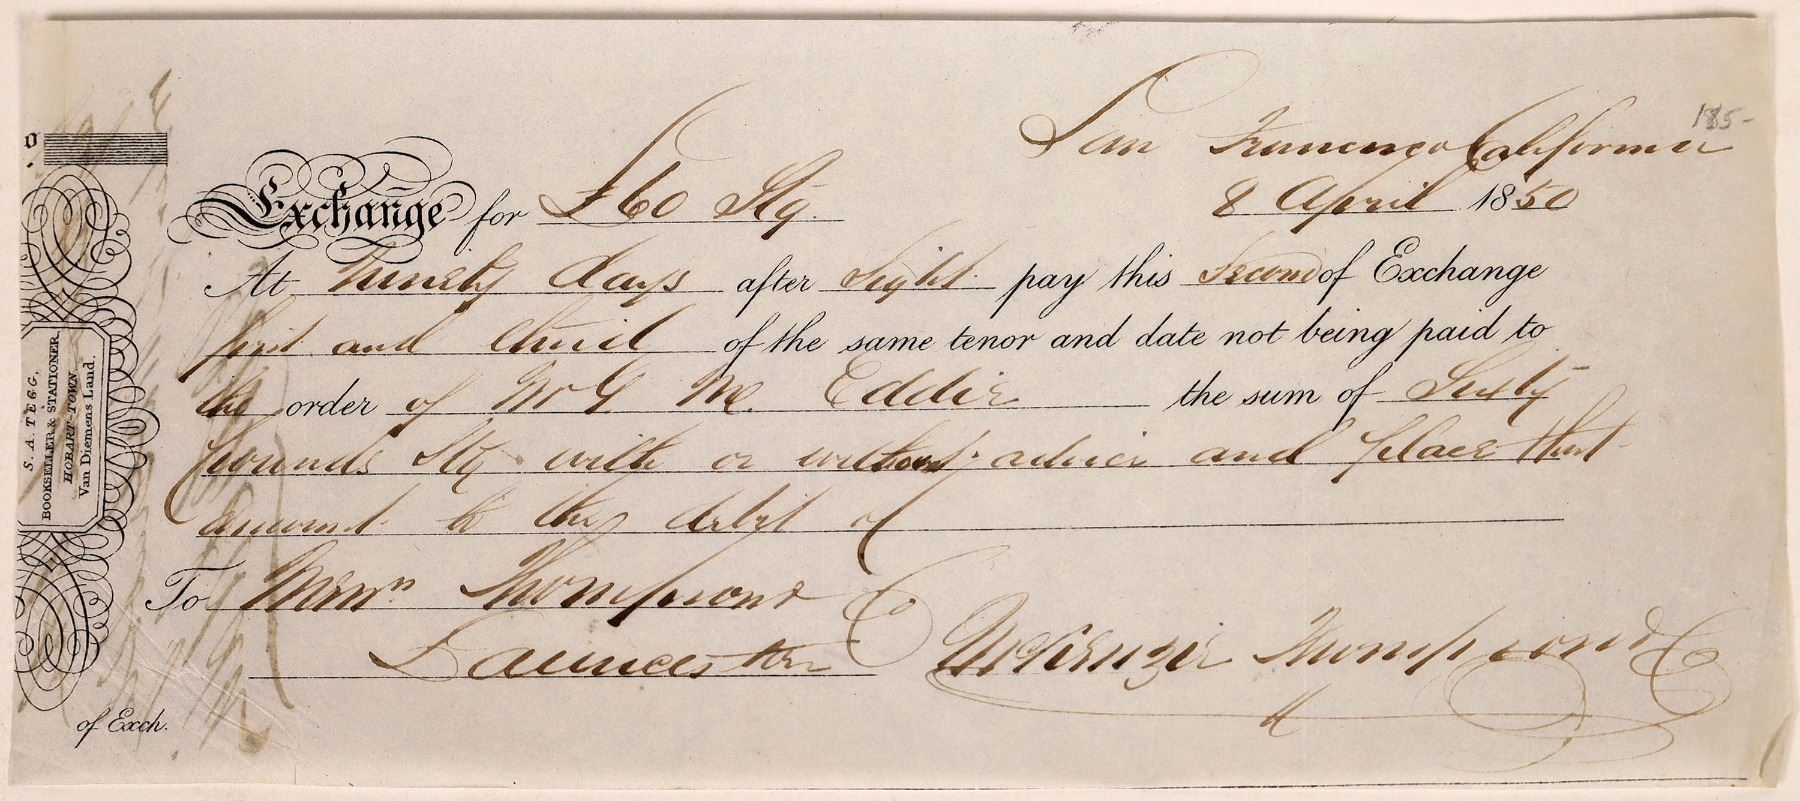 185-
San Francisco California
8 April 1850
Exchange for £60 Stg.
At Ninety days after Sight pay this Second of Exchange
first and third of the same tenor and date not being paid to
the order of W G M. Eddie the sum of Sixty
pounds Stg with or without advice and place that
amount to the debit of
To Messrs Thompson & Co
Launceston
McKenzie Thompson & Co
S. A. TEGG,
BOOKSELLER & STATIONER,
HOBART-TOWN
Van Diemens Land.
of Exch.